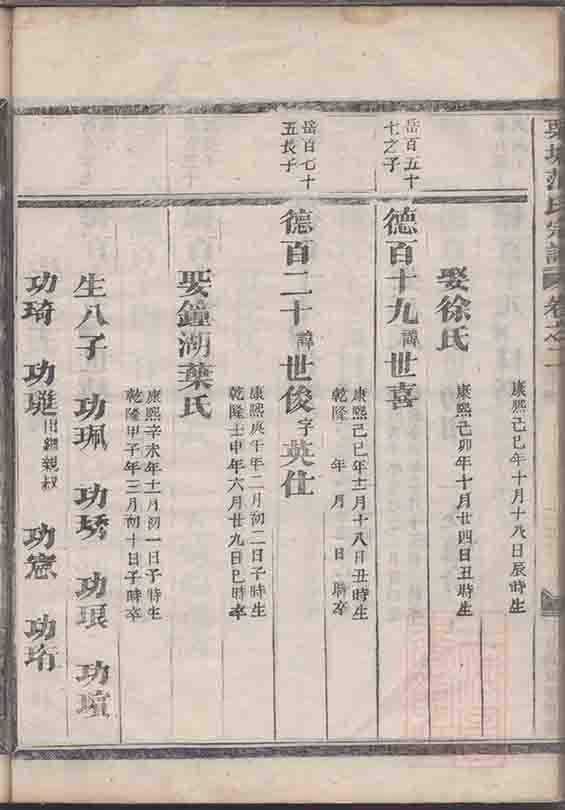 范氏宗譜 卷之二
康熙己巳年十月十八日辰時生
娶徐氏
康熙己卯年十月廿四日丑時生
岳百五十
七之子
德百十九諱世喜
康熙己巳年十二月十八日丑時生
乾隆 年 月 日 時卒
岳百七十
五長子
德百二十諱世俊字英仕
康熙庚午年二月初二日子時生
乾隆壬申年六月廿九日巳時卒
娶鐘湖葉氏
康熙辛未年十一月初一日子時生
乾隆甲子年三月初十日子時卒
生八子 功珮 功琇 功珢 功瑄
功琦 功璡出繼親叔 功瑬 功珩